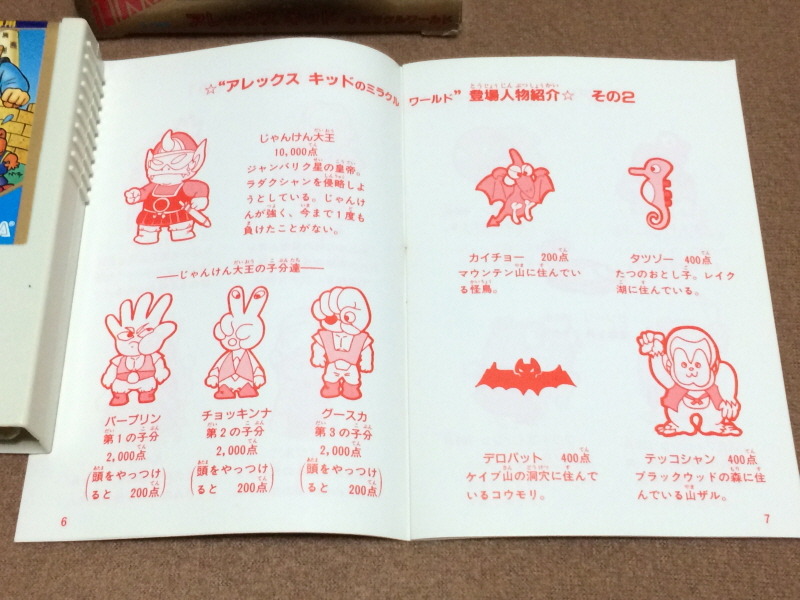 ☆“アレックス キッドのミラクル
ワールド”登場人物紹介☆ その2
じゃんけん大王
10,000点
ジャンバリク星の皇帝。
ラダクシャンを侵略しよ
うとしている。じゃんけ
んが強く、今まで1度も
負けたことがない。
──じゃんけん大王の子分達──
パープリン
第1の子分
2,000点
(頭をやっつけ
ると 200点)
チョッキンナ
第2の子分
2,000点
(頭をやっつけ
ると 200点)
グースカ
第3の子分
2,000点
(頭をやっつけ
ると 200点)
6
カイチョー 200点
マウンテン山に住んでい
る怪鳥。
タツゾー 400点
たつのおとし子。レイク
湖に住んでいる。
デロバット 400点
ケイブ山の洞穴に住んで
いるコウモリ。
テッコシャン 400点
ブラックウッドの森に住
んでいる山ザル。
7